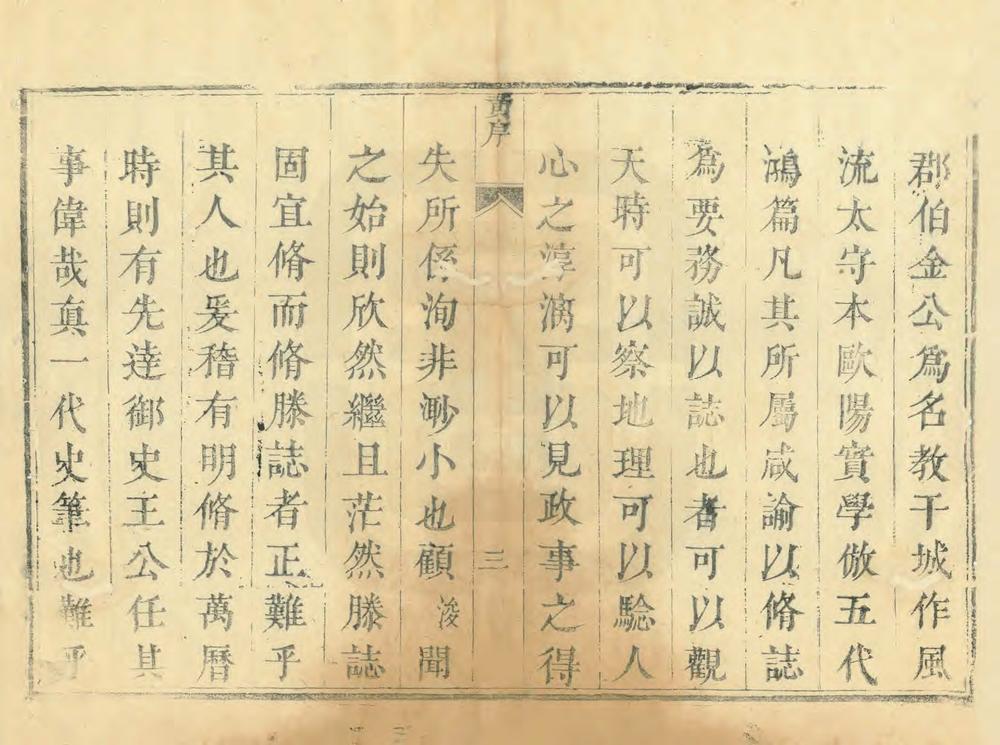 郡伯金公爲名教干城作風
流太守本歐陽實學倣五代
鴻篇凡其所屬咸諭以脩誌
爲要務誠以誌也者可以觀
天時可以察地理可以騐人
心之淳漓可以見政事之得
黃序
三
失所係洵非渺小也顧浚聞
之始則欣然繼且茫然滕誌
固宜脩而脩滕誌者正難乎
其人也爰稽有明脩於萬曆
時則有先逹御史王公任其
事偉哉真一代史筆也難乎